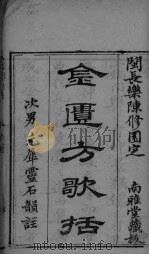 閩長樂陳修園定
南雅堂藏板
金匱方歌括
次男元犀靈石韻註